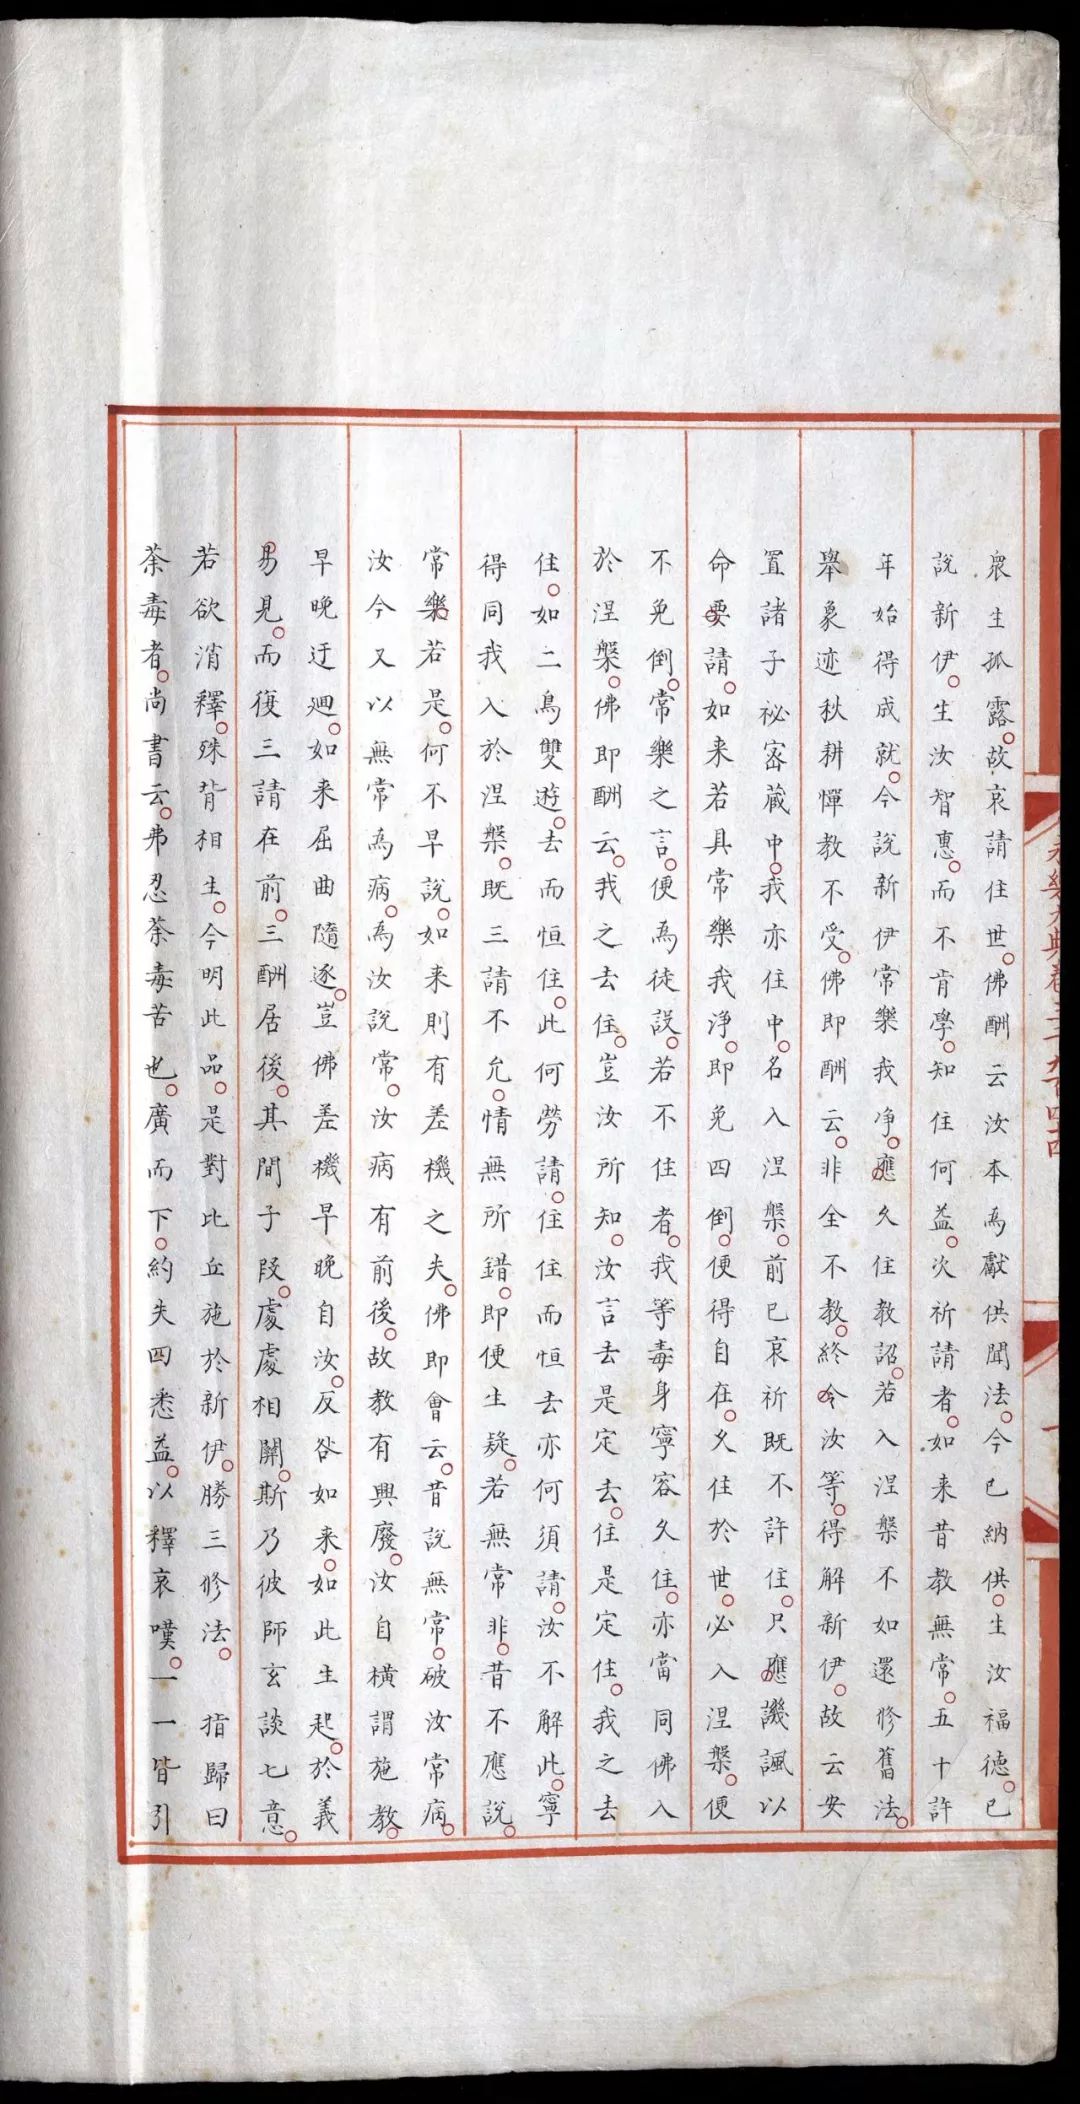 衆生孤露。故哀請住世。佛酬云汝本為獻供聞法。今已納供。生汝福德。已
說新伊。生汝智惠。而不肯學。知住何益。次祈請者。如来昔教無常。五十許
年始得成就。今說新伊常樂我净。應久住教詔。若入涅槃不如還修舊法。
舉象迹秋耕憚教不受。佛即酬云。非全不教。終令汝等。得解新伊。故云安
置諸子祕密蔵中。我亦住中。名入涅槃。前已哀祈既不許住。只應譏諷以
命要請。如来若具常樂我淨。即免四倒。便得自在。久住於世。必入涅槃。便
不免倒。常樂之言。便為徒設。若不住者。我等毒身寧容久住。亦當同佛入
於涅槃。佛即酬云。我之去住。豈汝所知。汝言去是定去。住是定住。我之去
住。如二鳥雙遊。去而恒住。此何勞請。住住而恒去亦何須請。汝不解此。寧
得同我入於涅槃。既三請不允。情無所錯。即便生疑。若無常非。昔不應說。
常樂若是。何不早說。如来則有差機之失。佛即會云。昔說無常。破汝常病。
汝今又以無常為病。為汝說常。汝病有前後。故教有興廢。汝自横謂施教。
早晚迂廻。如来屈曲隨逐。豈佛差機早晚自汝。反咎如来。如此生起。於義
易見。而復三請在前。三酬居後。其間子段。處處相關。斯乃彼師玄談七意。
若欲消釋。殊背相生。今明此品。是對比丘施於新伊。勝三修法。 指歸曰
荼毒者。尚書云。弗忍荼毒苦也。廣而下。約失四悉益。以釋哀嘆。一一皆引
永樂大典卷三千九百四十四